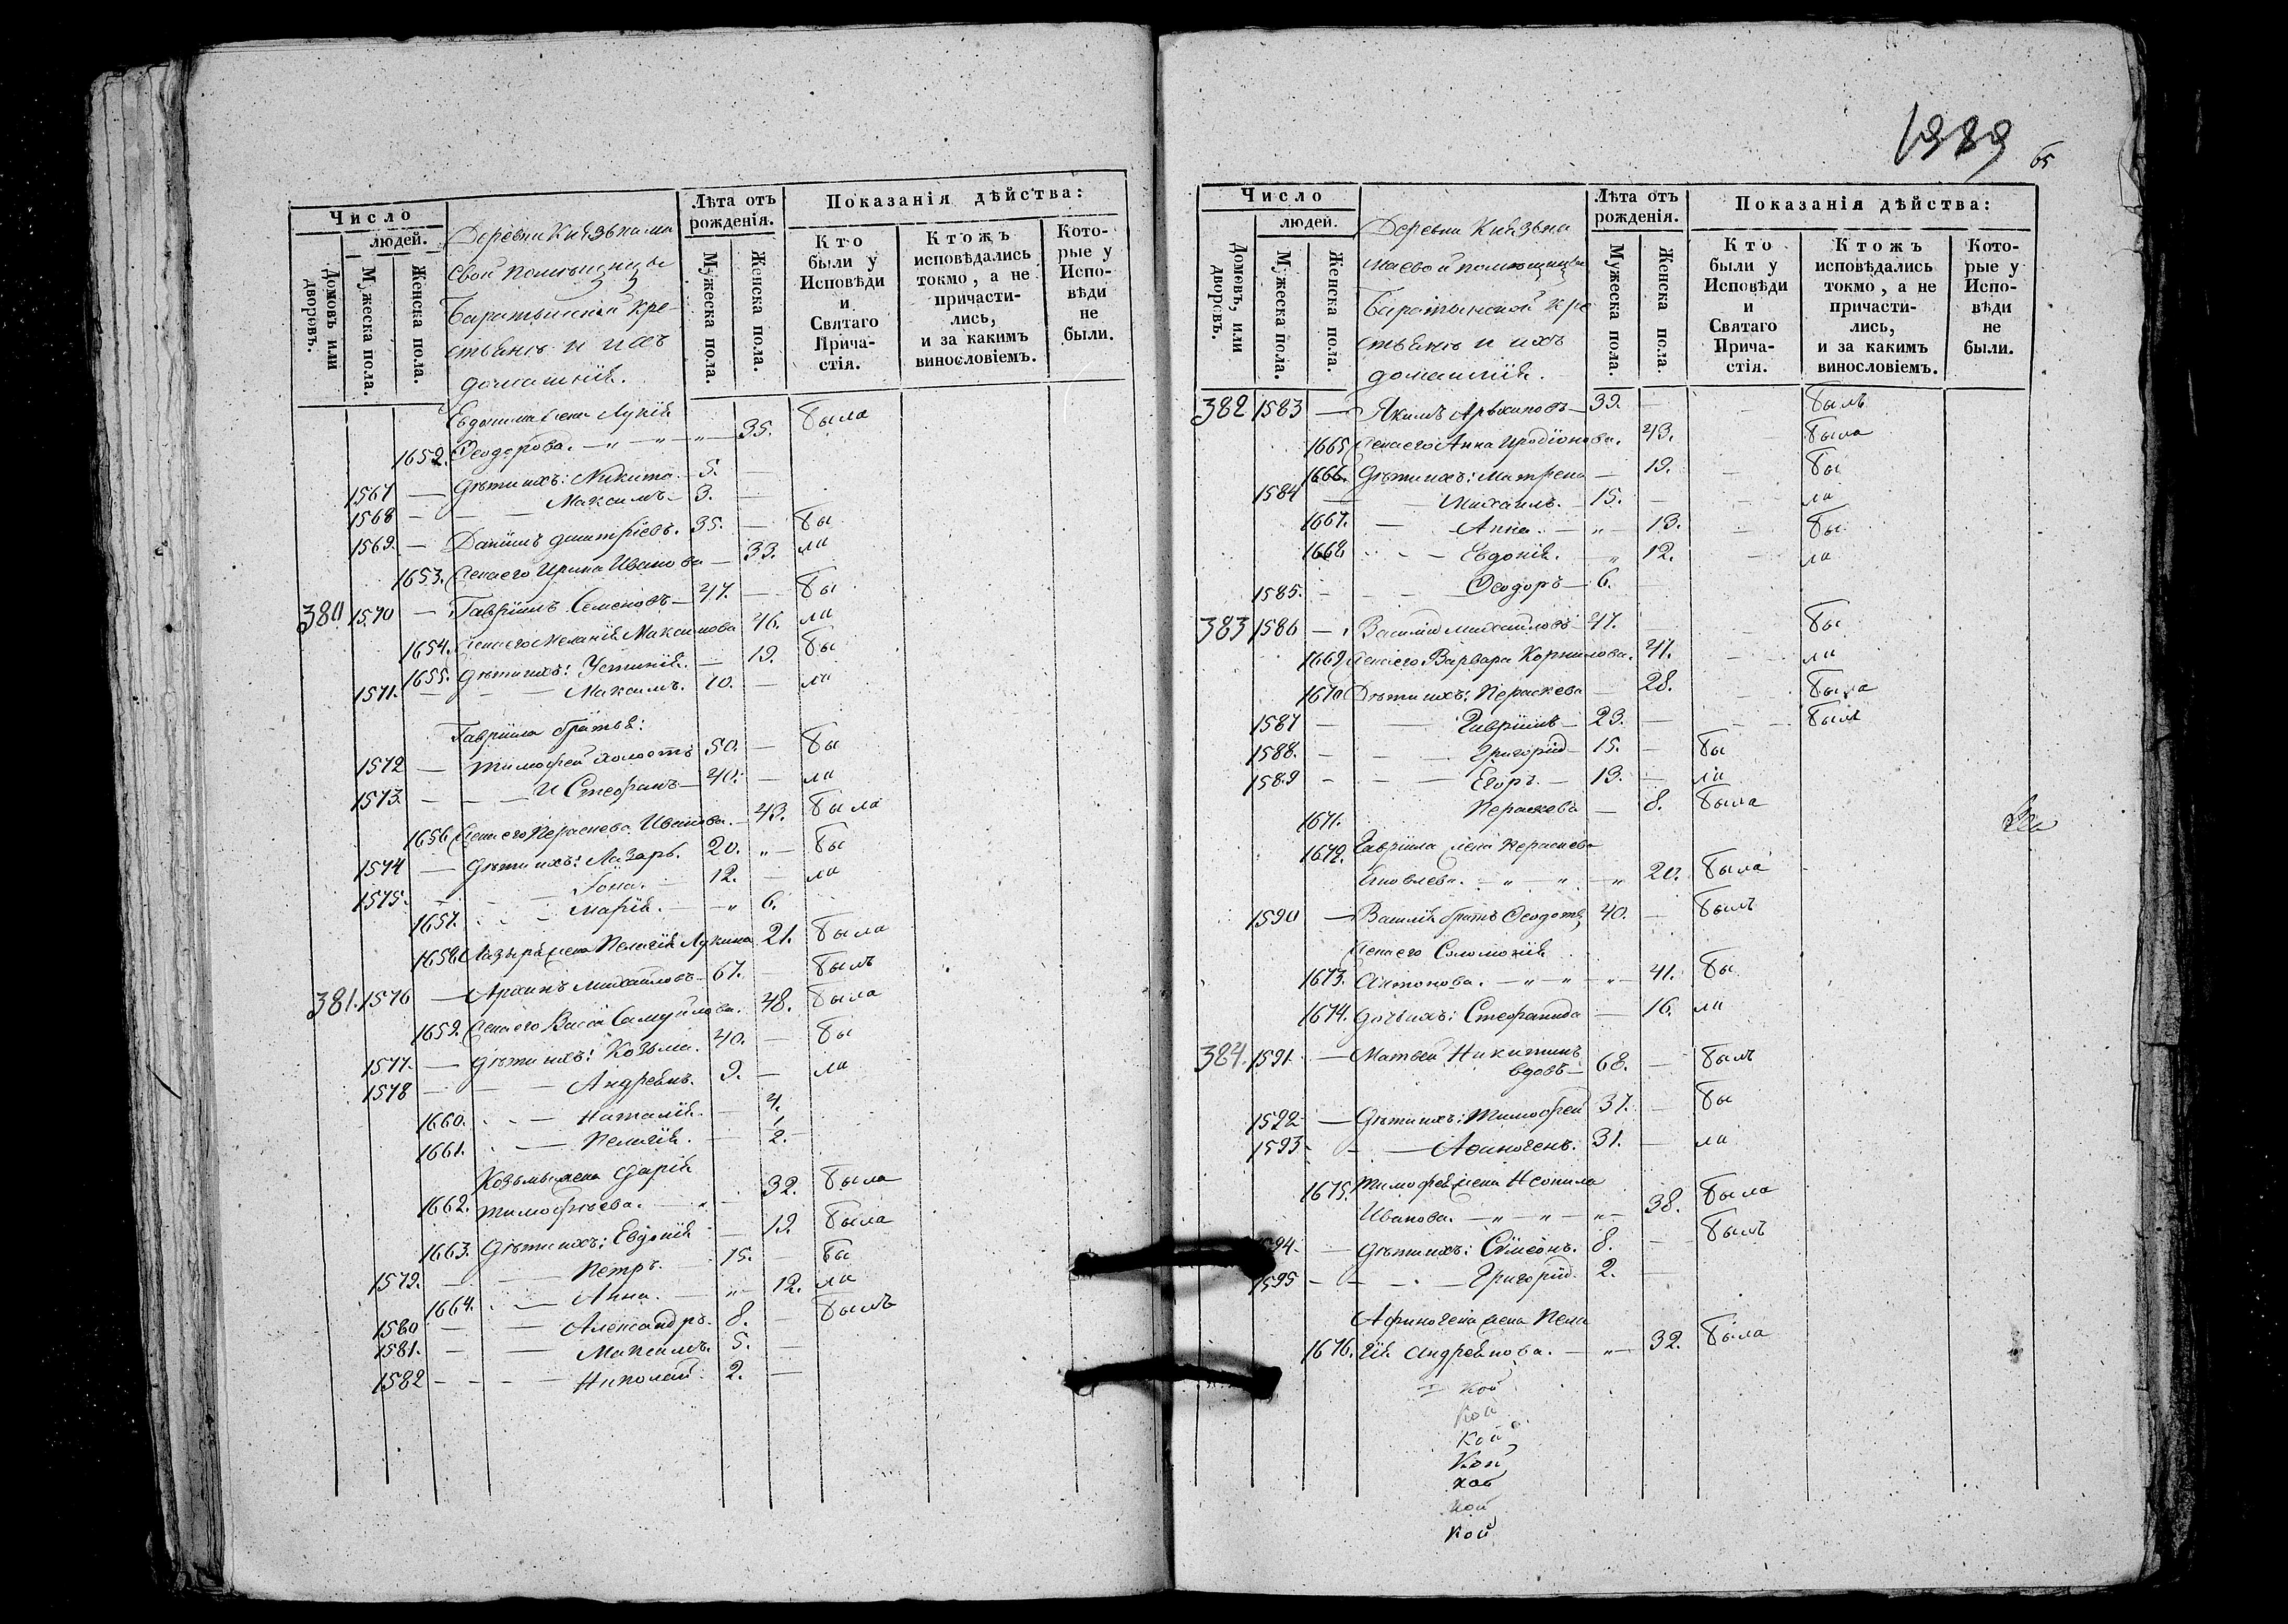 Число
людей.
Домовъ или дворовъ.
Мужеска пола.
Женска пола.
Деревни Князьнама
евой помѣщицы
Баратынской кре-
стьянъ и ихъ
домашнія.
Лѣта отъ рожденія.
Мужеска пола.
Женска пола.
Показанія дѣйства:
Кто были у Исповѣди и Святаго Прича- стія.
Ктожъ исповѣдались токмо, а не причасти- лись, и за какимъ винословіемъ.
Кото- рые у Испо- вѣди не были.
Евдокима жена Лукія
1652. Ѳеодорова. — " — " — " — 35. была
1567 — Дѣти ихъ: Никита — 5. —
1568 — — Максимъ — 3. —
1569. — Даніилъ Дмитріевъ. 35. — бы
1653. Жена его Ирина Иванова — 33. ла
380 1570 — Гавріилъ Семеновъ — 47. — бы
1654. Жена его Меланія Максимова 46. ла
1655. Дѣти ихъ: Устинія. — 19. бы
1571. — — Максимъ. 10. — ла
Гавріила братья:
1572 — Тимофей холостъ 50. — бы
1573. — — И Стефанъ — 40. — ла
1656 Жена его Параскева Иванова. — 43. была
1574 — Дѣти ихъ: Лазарь. 20. " — бы
1575. — — Іона. — 12. — ла
1657. — Марія. — " 6.
1658 Лазаря жена Пелагія Лукина 21. была
381. 1576 — Архипъ Михайловъ — 67. — былъ
1659. Жена его Васса Самуйлова. 48. была
1577. — Дѣти ихъ: Козьма. 40. — бы
1578 — — Андреянъ. 9. — ла
1660. — Наталія. — 4.
1661. — Пелагія. — 2.
Козьмы жена Дарія
1662. Тимофѣева. — " — 32. была
1663. Дѣти ихъ: Евдокія — 19. была
1579. — — Петръ. 15. — бы
1664. — Анна. — " — 12. ла
1580 — — Александръ. 8. — былъ
1581. — — Максимъ. 5. —
1582 — — — Николай. 2. —
1989
65
Число
людей.
Домовъ, или дворовъ.
Мужеска пола.
Женска пола.
Деревни Князьна
маевой помѣщицы
Баратынской кре
стьянъ и ихъ
домашнія.
Лѣта отъ рожденія.
Мужеска пола.
Женска пола.
Показанія дѣйства:
Кто были у Исповѣди и Святаго Прича- стія.
Ктожъ исповѣдались токмо, а не причасти- лись, и за какимъ винословіемъ.
Кото- рые у Испо- вѣди не были.
382 1583 — Якимъ Архиповъ — 39. — — былъ
1665 Жена его Анна Иродіонова. 43. — была
1666. Дѣти ихъ: Матрена — 19. — бы
1584 — Михаилъ. — 15. — — ла
1667. — Анна. — " — 13. — бы
1668 — Евдокія. — " 12. — ла
1585. — — — Ѳеодоръ — 6. —
383 1586 — Василій Михайловъ — 47. — — бы
1669 Жена его Варвара Корнилова. 47. — ла
1670 Дѣти ихъ: Параскева — 28. — была
1587 — — Гавріилъ — 23. — — былъ
1588. — — — Григорій — 15. — бы
1589 — — — Егоръ. — 13. — ла
1671. Параскева — 8. была
1672. Гавріила жена Параскева
Яковлева. — " — " — " 20. была
1590 — Василія братъ Ѳеодотъ 40. — былъ
Жена его Соломонія
1673. Антонова. — " — " — " — 41. бы
1674. Дочь ихъ: Стефанида — 16. ла
384. 1591. — Матвей Никитинъ
вдовъ — 68. — былъ
1592 — Дѣти ихъ: Тимофей 37. — бы
1593. — — Афиногенъ. 31. — ла
1675. Тимофея жена Неонила
Иванова. — " — " — " — 38. была
1594. — Дѣти ихъ: Сумеонъ. 8. — былъ
1595 — — Григорій. 2. —
Афиногена жена Пела
1676. гія Андреянова. — " — 32. была
кой
кой
кой
кой
кой
кой